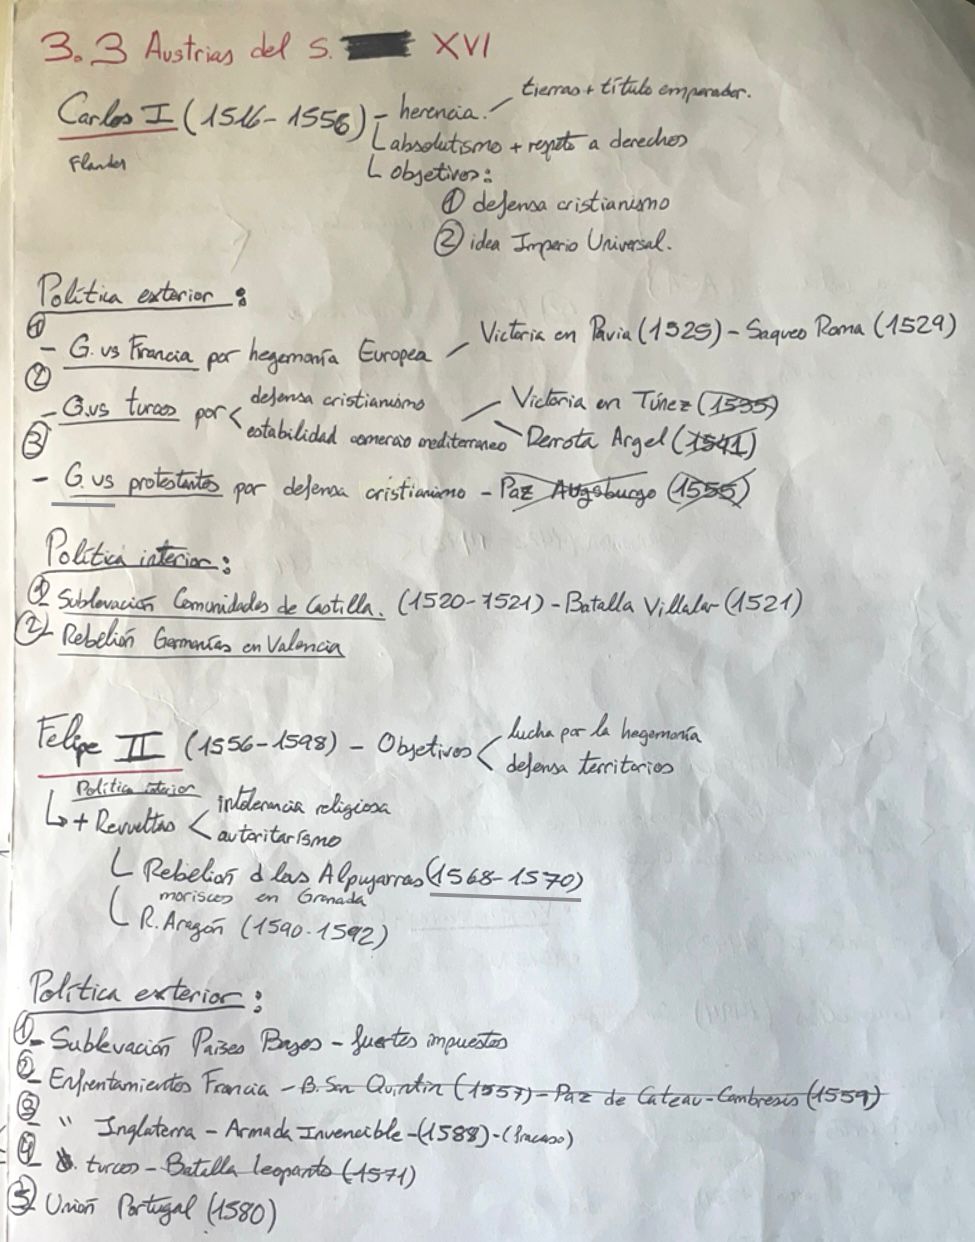 3.3 Austrias del S. XVI
Carlos I (1516-1556) - herencia. tierras + título emperador.
Flandes
absolutismo + respeto a derechos
objetivos:
① defensa cristianismo
② idea Imperio Universal.
Política exterior:
① - G. vs Francia por hegemonía Europea Victoria en Pavia (1525) - Saqueo Roma (1529)
② - G. vs turcos por < defensa cristianismo Victoria en Túnez (1535)
estabilidad comercio mediterraneo Derrota Argel (1541)
③ - G. vs protestantes por defensa cristianismo - Paz Augsburgo (1555)
Política interior:
① Sublevación Comunidades de Castilla. (1520-1521) - Batalla Villalar (1521)
② - Rebelión Germanías en Valencia
Felipe II (1556-1598) - Objetivos < lucha por la hegemonía
defensa territorios
Política interior
↳ + Revueltas < intolerancia religiosa
autoritarismo
Rebelión d las Alpujarras (1568-1570)
moriscos en Granada
R. Aragón (1590-1592)
Política exterior:
① - Sublevación Países Bajos - fuertes impuestos
② - Enfrentamientos Francia - B. San Quintín (1557) - Paz de Cateau-Cambresis (1559)
③ " Inglaterra - Armada Invencible - (1588) - (fracaso)
④ - turcos - Batalla leopanto (1571)
⑤ - Unión Portugal (1580)